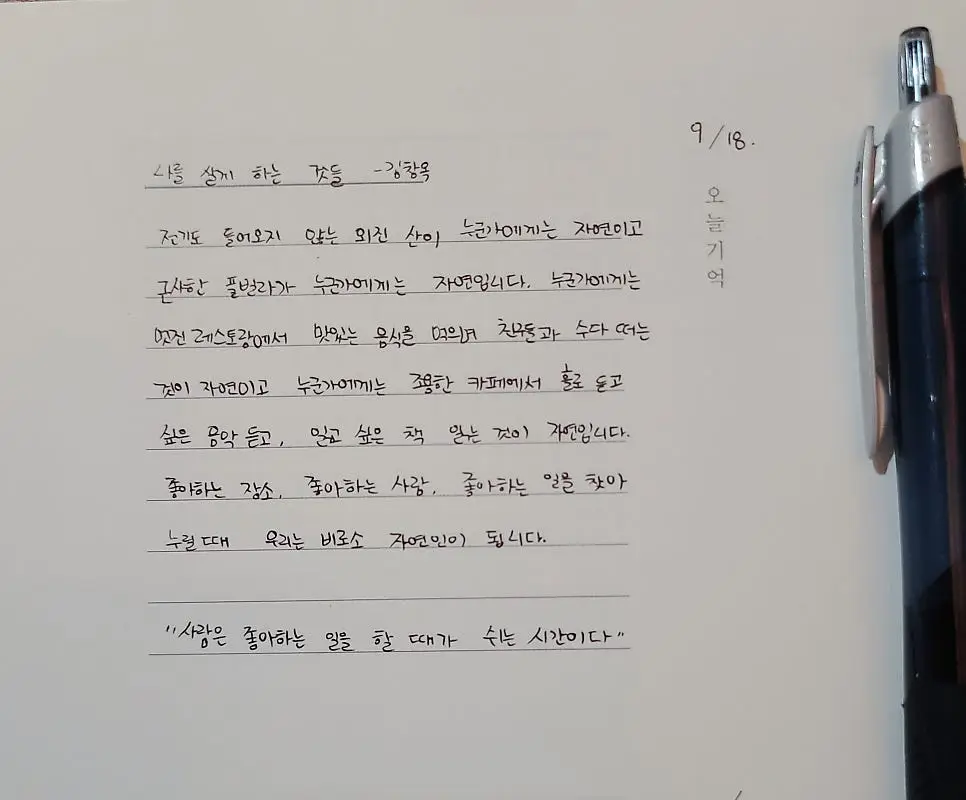 9/18.
오늘기억
나를 살게 하는 것들 -김창옥
전기도 들어오지 않는 외진 산이 누군가에게는 자연이고
근사한 풀빌라가 누군가에게는 자연입니다. 누군가에게는
멋진 레스토랑에서 맛있는 음식을 먹으며 친구들과 수다 떠는
것이 자연이고 누군가에게는 조용한 카페에서 홀로 듣고
싶은 음악 듣고, 읽고 싶은 책 읽는 것이 자연입니다.
좋아하는 장소, 좋아하는 사람, 좋아하는 일을 찾아
누릴 때 우리는 비로소 자연인이 됩니다.
"사람은 좋아하는 일을 할 때가 쉬는 시간이다"